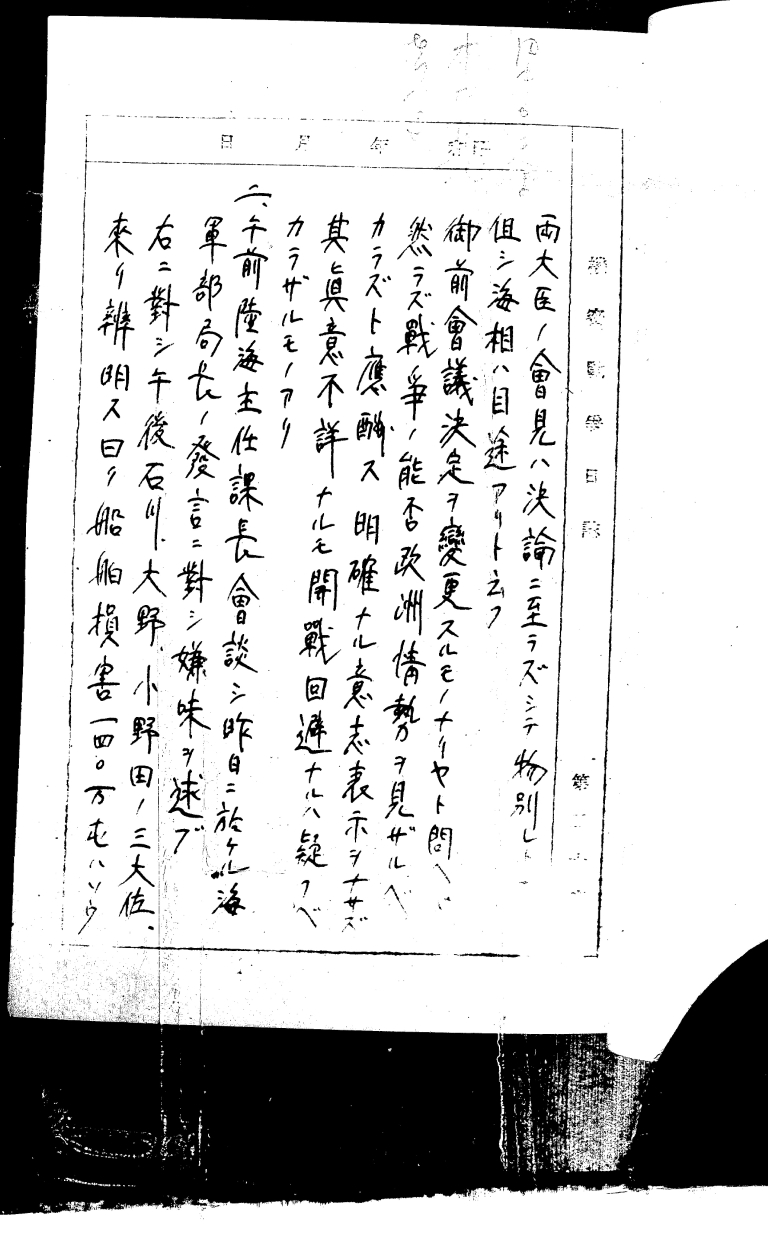 機密戰爭日誌
第
昭和 年 月 日
両大臣ノ會見ハ決論ニ至ラズシテ物別レト
但シ海相ハ目途アリト云フ
御前會議決定ヲ變更スルモノナリヤト問ヘバ
然ラズ戰爭ノ能否欧洲情勢ヲ見ザルベ
カラズト應酬ス明確ナル意志表示ヲナサズ
其眞意不詳ナルモ開戰回避ナルハ疑フベ
カラザルモノアリ
二、午前陸海主任課長會談シ昨日ニ於ケル海
軍部局長ノ發言ニ對シ嫌味ヲ述ブ
右ニ對シ午後石川、大野、小野田ノ三大佐、
來リ辨明ス曰ク船舶損害一四〇万屯ハソウ